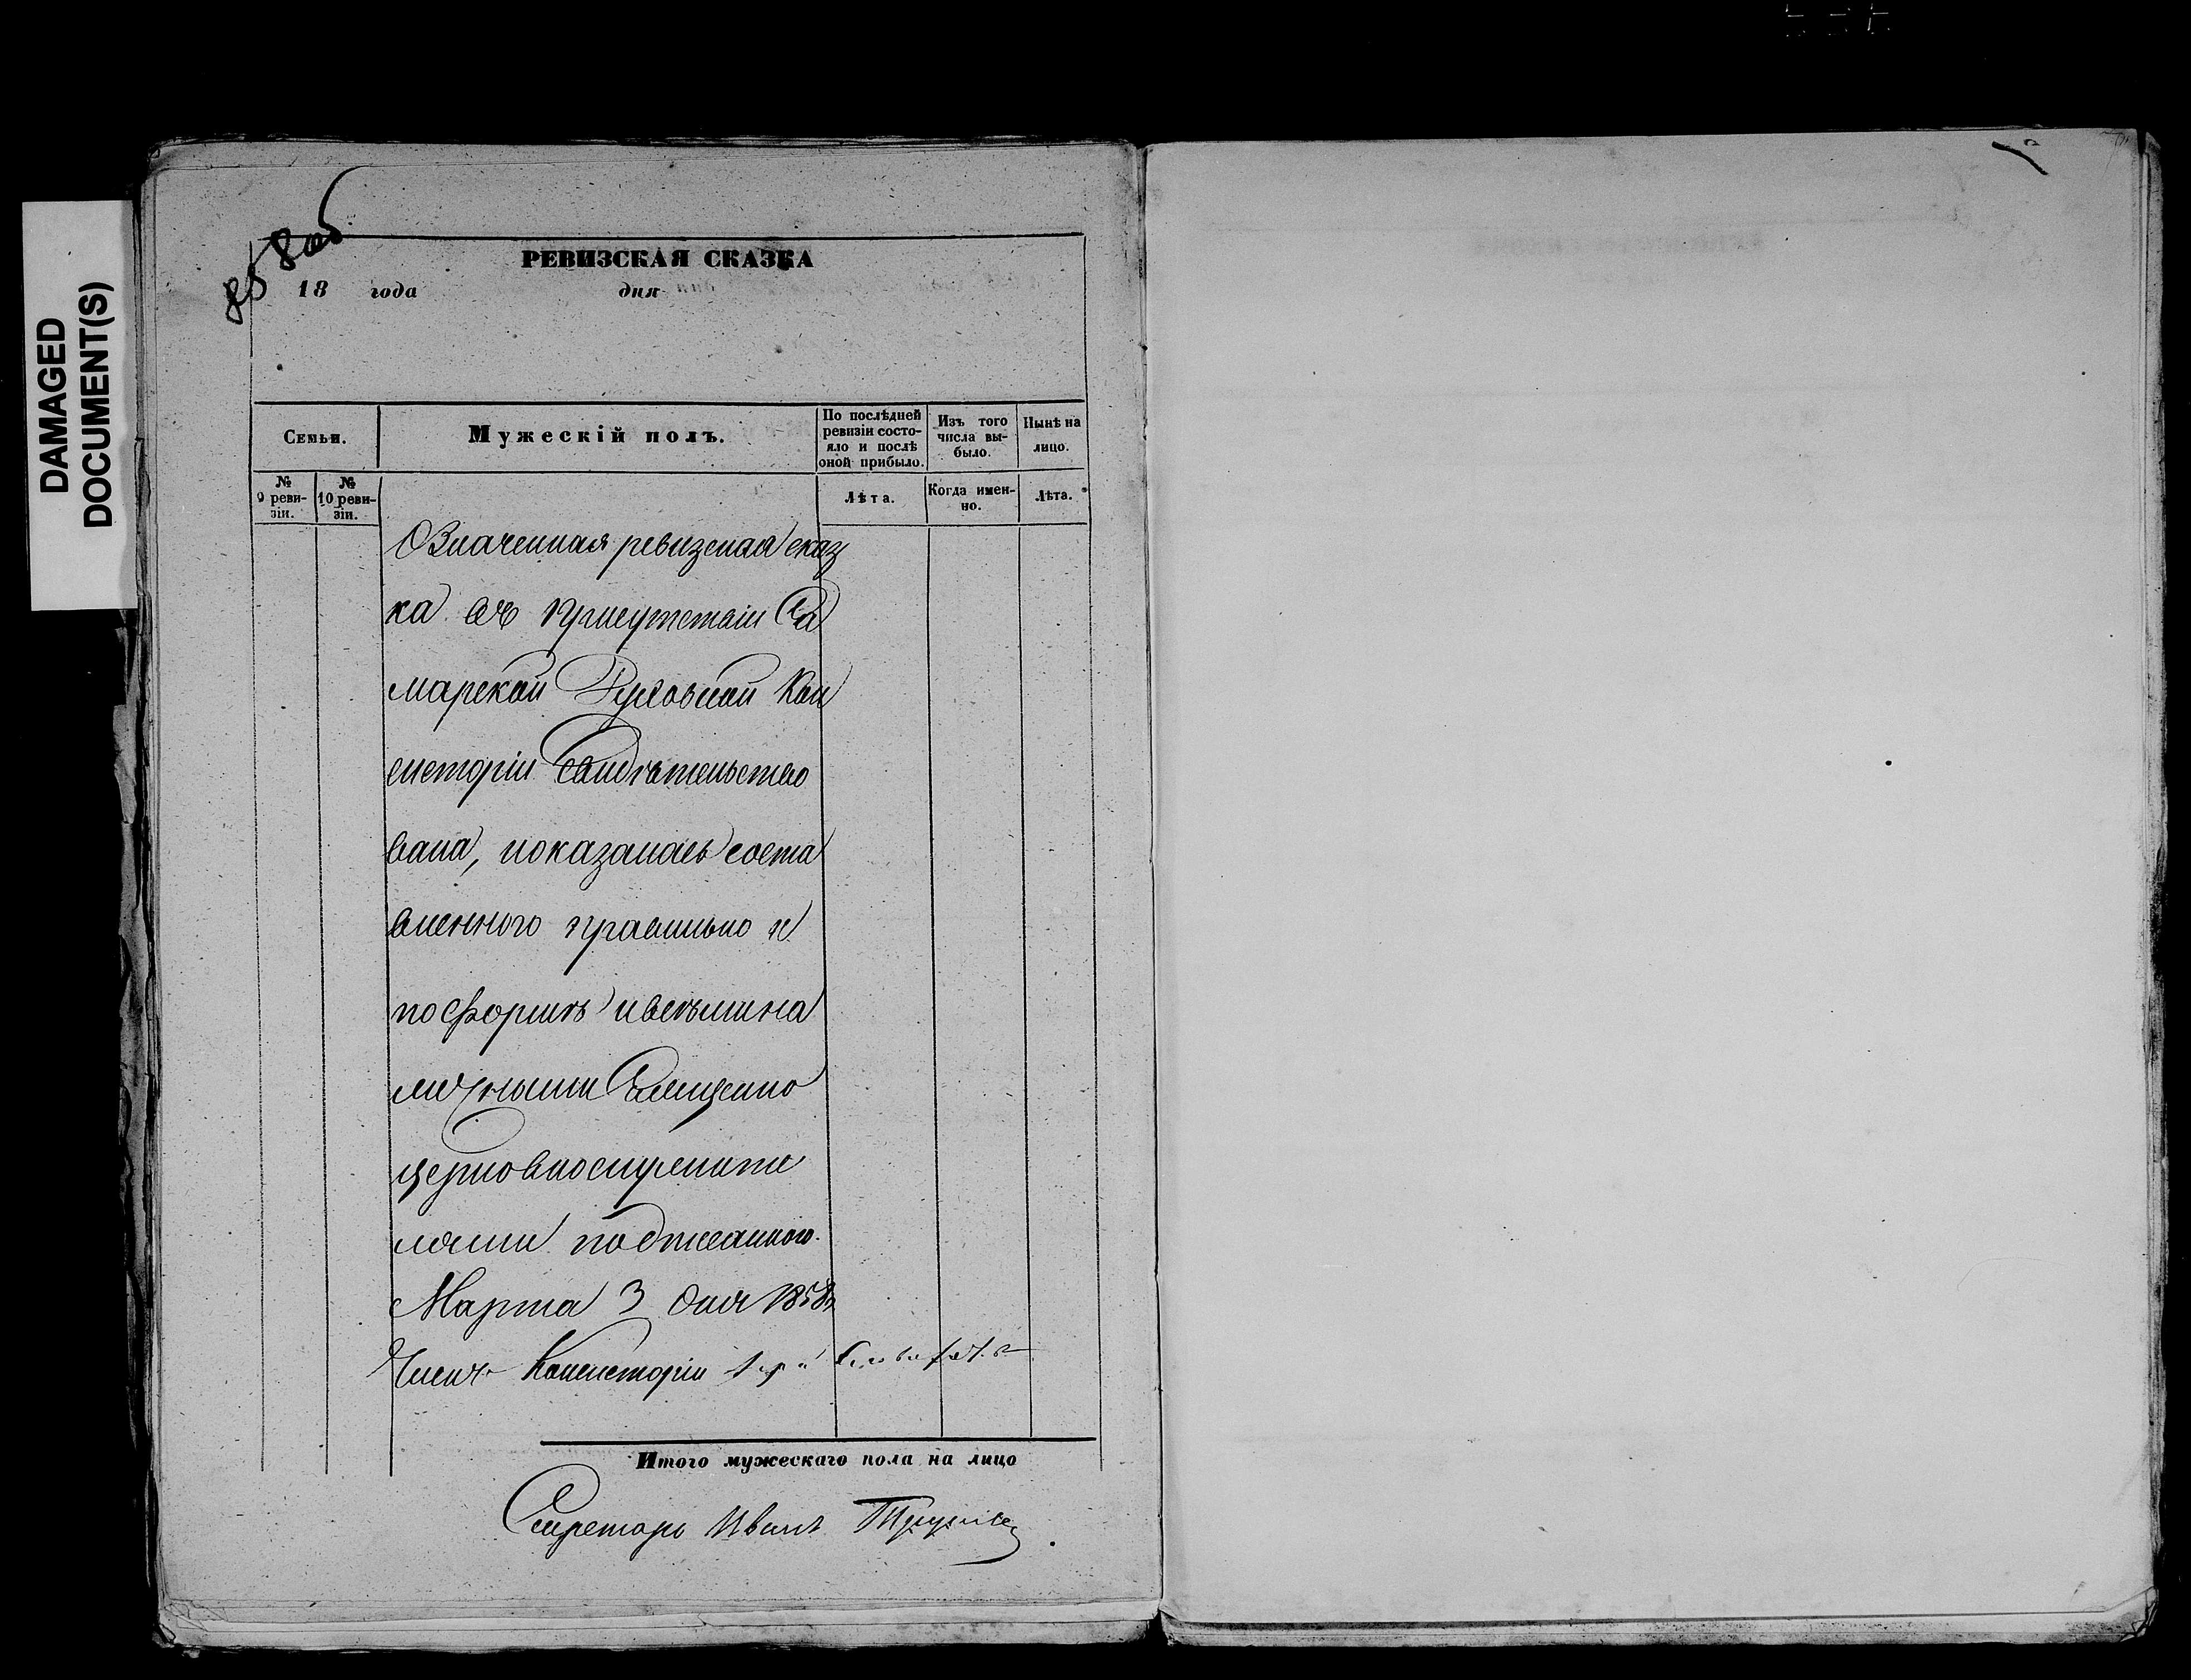 DAMAGED
DOCUMENT(S)
858об
РЕВИЗСКАЯ СКАЗКА
18 года дня
Семьи.
Мужескій полъ.
По послѣдней ревизіи состояло и послѣ оной прибыло.
Изъ того числа выбыло.
Нынѣ на лицо.
№ 9 ревизіи.
№ 10 ревизіи.
Лѣта.
Когда именно.
Лѣта.
Означенная ревизская сказ
ка въ присутствіи Са
марской Духовной Кон
систоріи свидѣтельство
вана, показалась соста
вленного правильно и
по формѣ и всѣми на
личными Священно
церковнослужите
лями подписанного.
Марта 3 дня 1858
Членъ Консисторіи
Итого мужескаго пола на лицо
Секретарь Иванъ